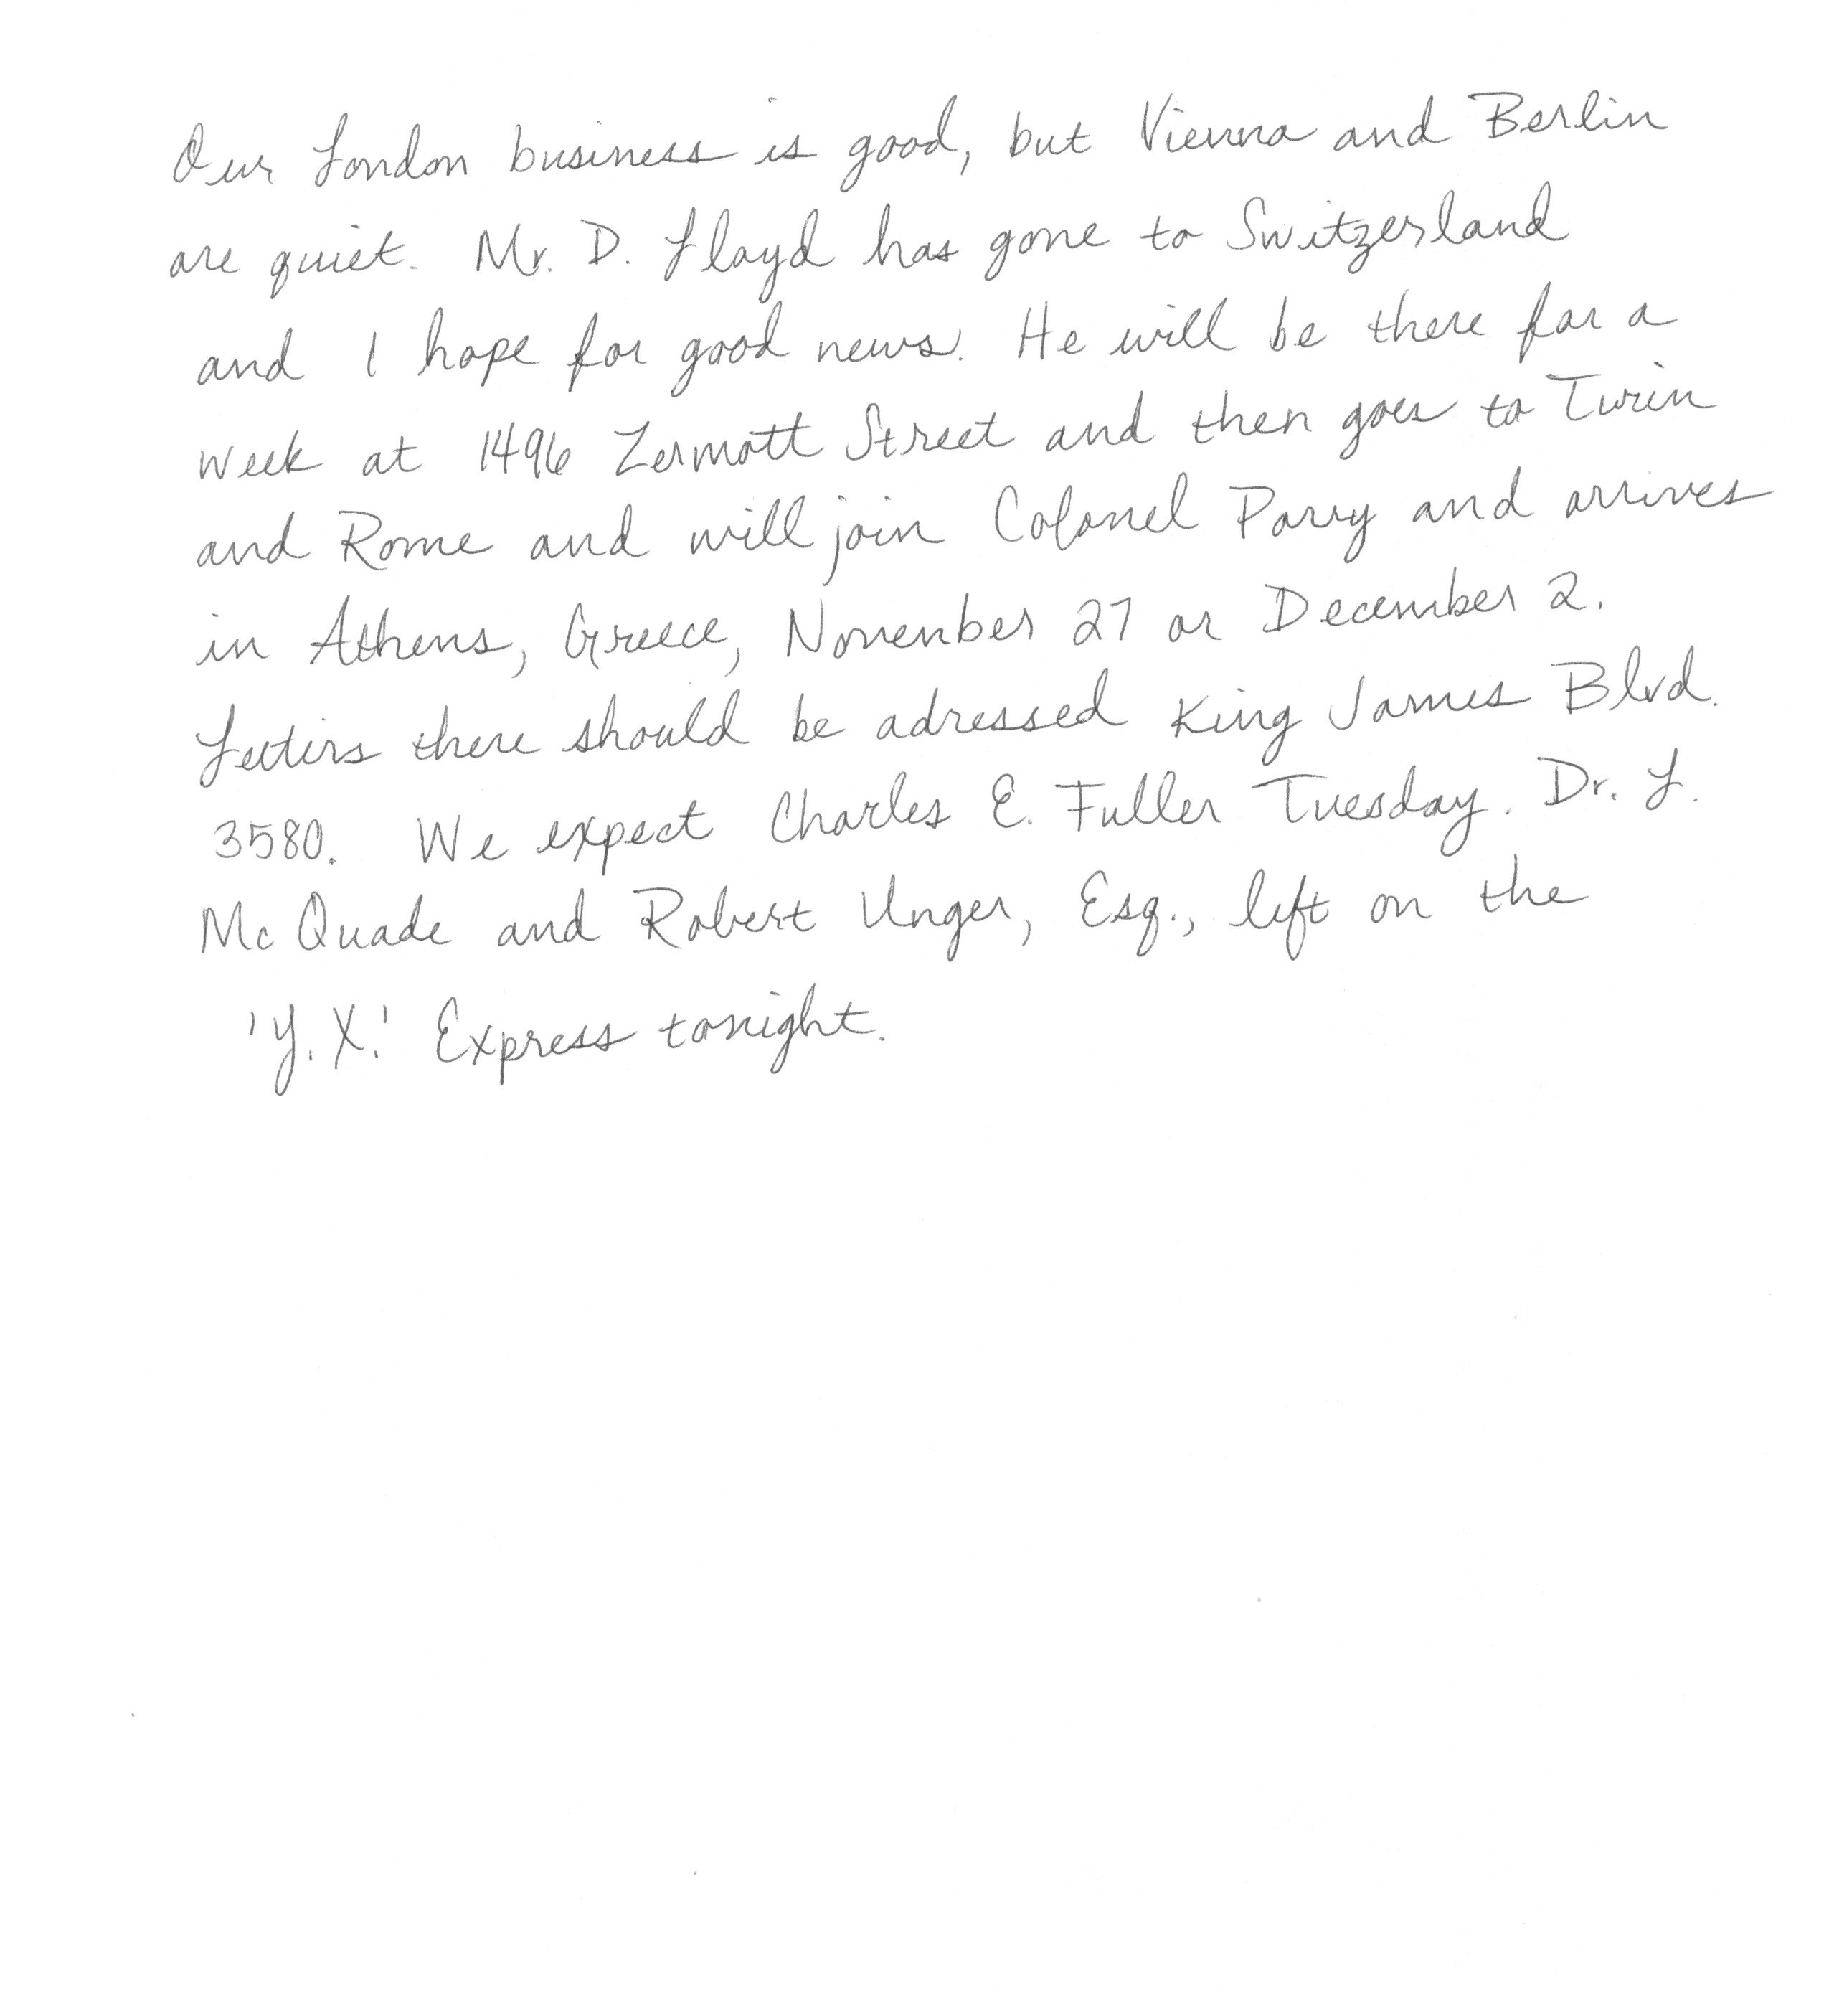 Our London business is good, but Vienna and Berlin
are quiet. Mr. D. Lloyd has gone to Switzerland
and I hope for good news. He will be there for a
week at 1496 Zermott Street and then goes to Turin
and Rome and will join Colonel Parry and arrives
in Athens, Greece, November 27 or December 2.
Letters there should be adressed King James Blvd.
3580. We expect Charles E. Fuller Tuesday. Dr. L.
McQuade and Robert Unger, Esq., left on the
'Y.X.' Express tonight.